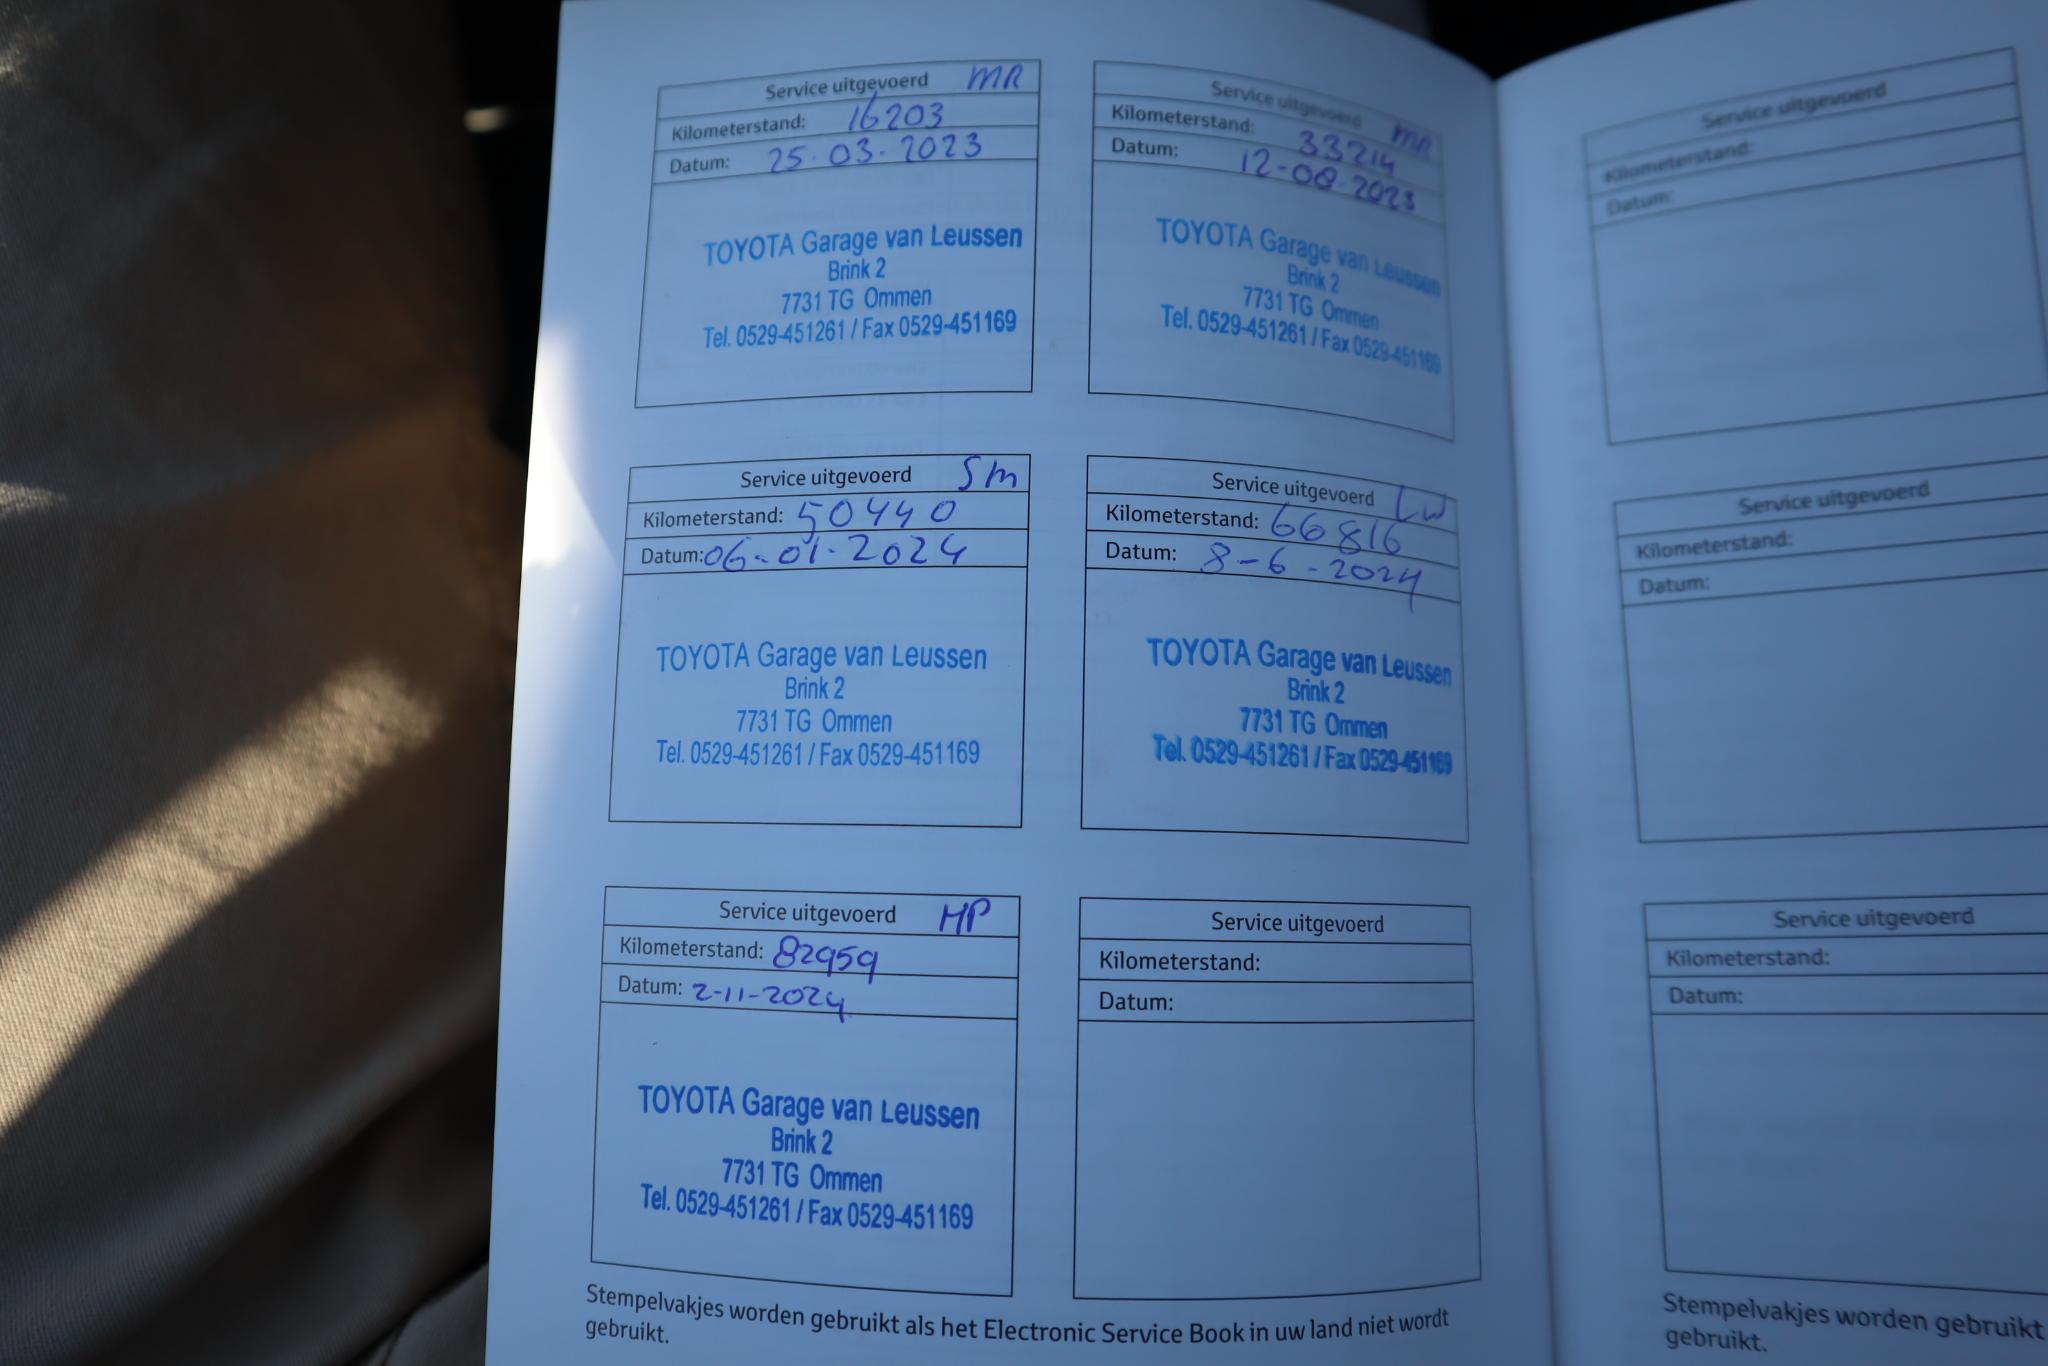 Service uitgevoerd MR
Kilometerstand: 16203
Datum: 25-03-2023
TOYOTA Garage van Leussen
Brink 2
7731 TG Ommen
Tel. 0529-451261 / Fax 0529-451169
Service uitgevoerd MR
Kilometerstand: 33214
Datum: 12-08-2023
TOYOTA Garage van Leussen
Brink 2
7731 TG Ommen
Tel. 0529-451261 / Fax 0529-451169
Service uitgevoerd Sm
Kilometerstand: 50440
Datum: 06-01-2024
TOYOTA Garage van Leussen
Brink 2
7731 TG Ommen
Tel. 0529-451261 / Fax 0529-451169
Service uitgevoerd LW
Kilometerstand: 66816
Datum: 8-6-2024
TOYOTA Garage van Leussen
Brink 2
7731 TG Ommen
Tel. 0529-451261 / Fax 0529-451169
Service uitgevoerd HP
Kilometerstand: 82959
Datum: 2-11-2024
TOYOTA Garage van Leussen
Brink 2
7731 TG Ommen
Tel. 0529-451261 / Fax 0529-451169
Service uitgevoerd
Kilometerstand:
Datum:
Stempelvakjes worden gebruikt als het Electronic Service Book in uw land niet wordt
gebruikt.
Service uitgevoerd
Kilometerstand:
Datum:
Service uitgevoerd
Kilometerstand:
Datum:
Service uitgevoerd
Kilometerstand:
Datum:
Stempelvakjes worden gebruikt
gebruikt.